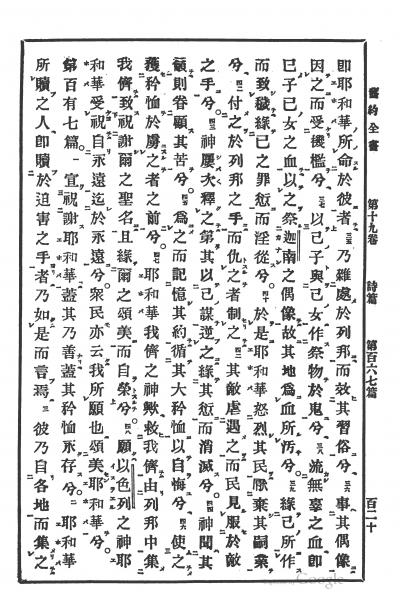 舊約全書 第十九卷 詩篇 第百六七篇 百二十
即耶和華所命於彼者三五乃雜處於列邦而效其習俗兮三六事其偶像
因之而受機檻兮三七以己子與己女作祭物於鬼兮三八流無辜之血即
己子己女之血以之祭迦南之偶像故其地爲血所汚兮三九緣己所作
而致穢緣己之罪愆而淫從兮四十於是耶和華怒烈其民厭棄其嗣業
兮四一付之於列邦之手而仇之者制之四二其敵虐遇之而民見服於敵
之手兮四三神屢次釋之第其以己謀逆之緣其愆而消滅兮四四神聞其
籲則眷顧其苦兮四五爲之而記憶其約循其大矜恤以自悔兮四六使之
獲矜恤於虜之者之前兮四七耶和華我儕之神歟救我儕由列邦中集
我儕致祝謝爾之聖名且緣爾之頌美而自榮兮四八願以色列之神耶
和華受祝自永遠迄於永遠兮衆民亦云我所願也頌美耶和華兮
第百有七篇一宜祝謝耶和華蓋其乃善蓋其矜恤永存兮二耶和華
所贖之人即贖於迫害之手者乃如是而言焉三彼乃自各地而集之
Google